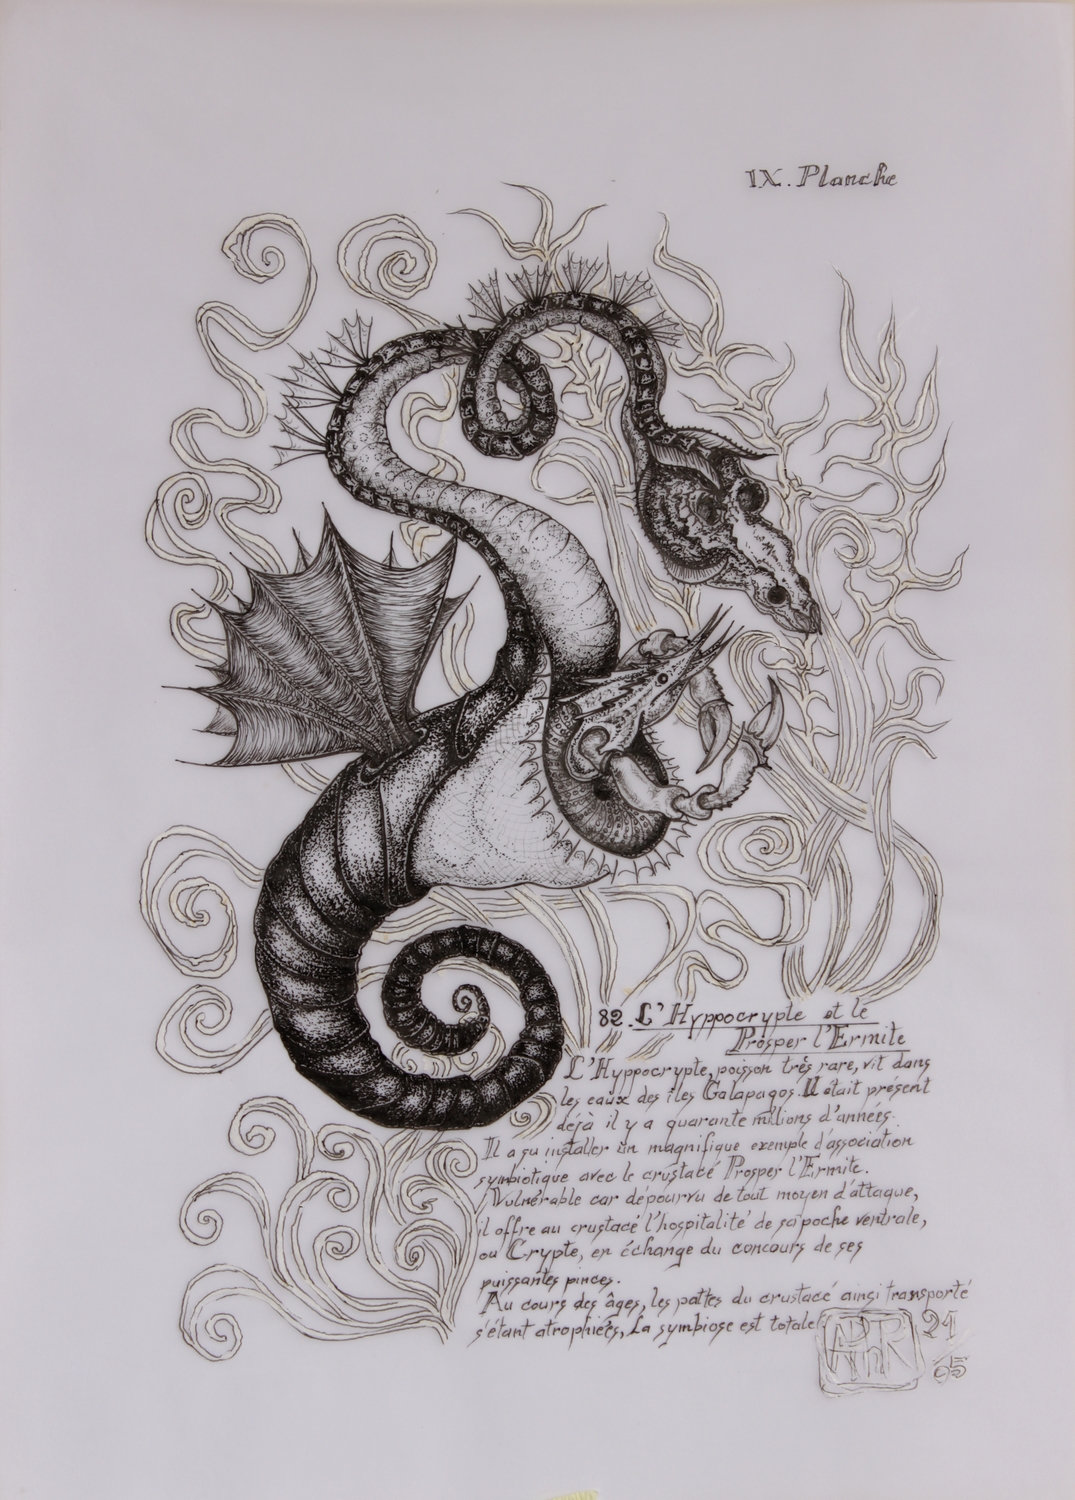 IX. Planche
82. L'Hyppocrypte et le
Prosper l'Ermite
L'Hyppocrypte, poisson très rare, vit dans
les eaux des îles Galapagos. Il était présent
déjà il y a quarante millions d'années.
Il a su installer un magnifique exemple d'association
symbiotique avec le crustacé Prosper l'Ermite.
Vulnérable car dépourvu de tout moyen d'attaque,
il offre au crustacé l'hospitalité de sa poche ventrale,
ou Crypte, en échange du concours de ses
puissantes pinces.
Au cours des âges, les pattes du crustacé ainsi transporté
s'étant atrophiées, La symbiose est totale
21
05